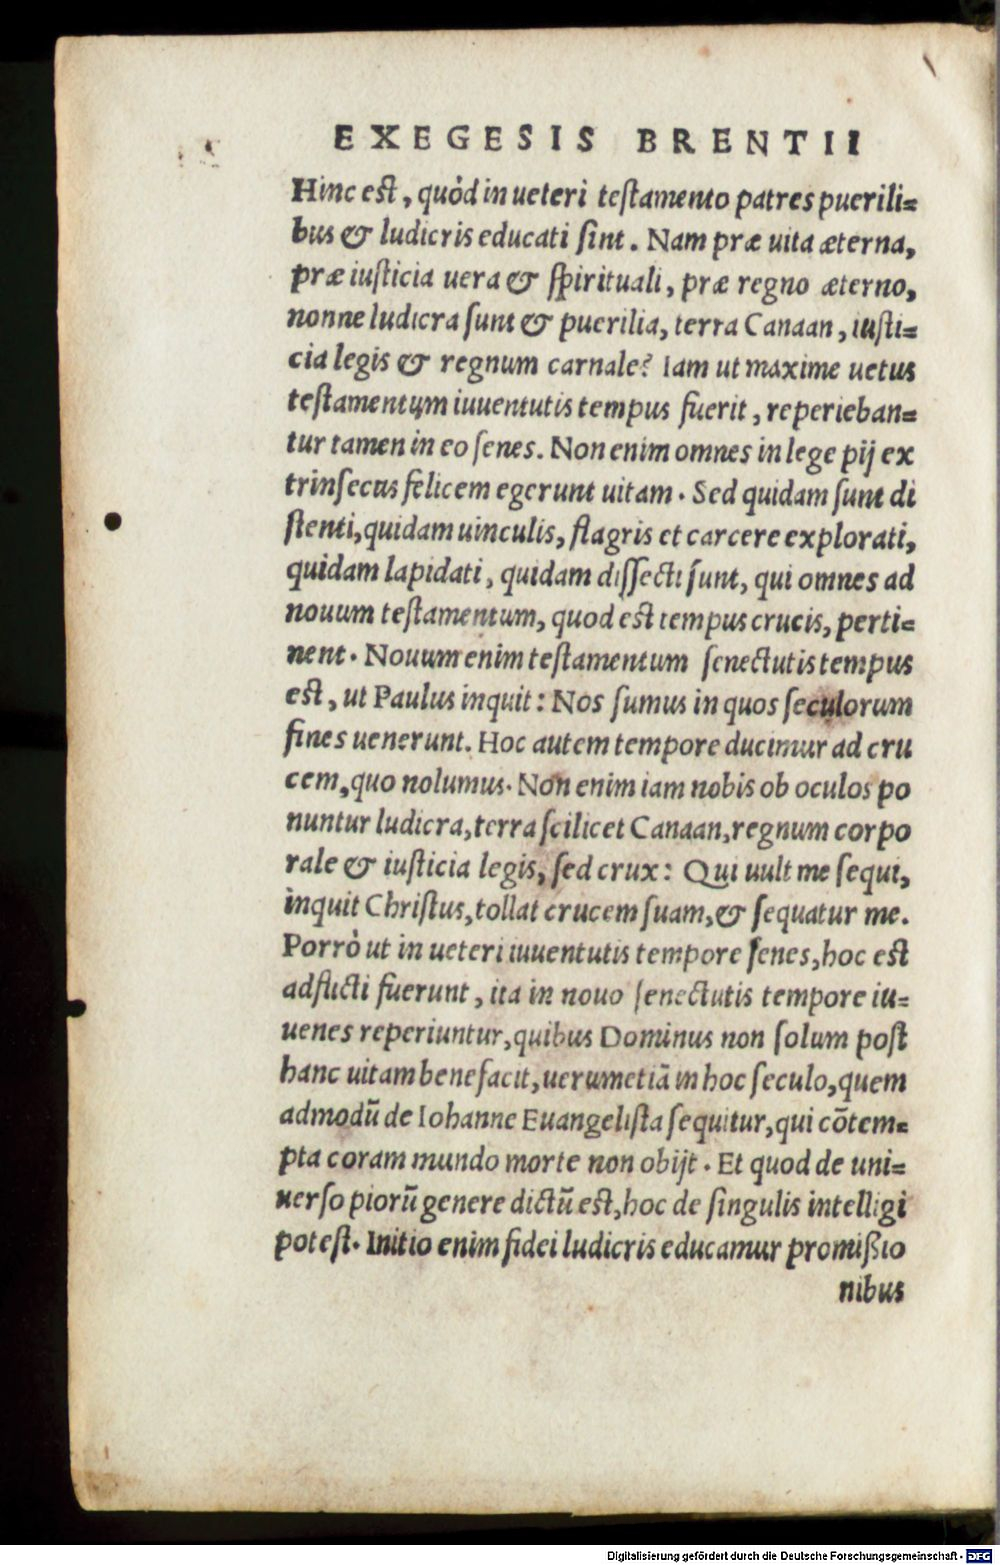 EXEGESIS BRENTII
Hinc est, quòd in ueteri testamento patres puerili=
bus & ludicris educati sint. Nam præ uita æterna,
præ iusticia uera & spirituali, præ regno æterno,
nonne ludicra sunt & puerilia, terra Canaan, iusti=
cia legis & regnum carnale? Iam ut maxime uetus
testamentum iuuentutis tempus fuerit, reperieban=
tur tamen in eo senes. Non enim omnes in lege pij ex
trinsecus felicem egerunt uitam. Sed quidam sunt di
stenti, quidam uinculis, flagris et carcere explorati,
quidam lapidati, quidam dissecti sunt, qui omnes ad
nouum testamentum, quod est tempus crucis, perti=
nent. Nouum enim testamentum senectutis tempus
est, ut Paulus inquit: Nos sumus in quos seculorum
fines uenerunt. Hoc autem tempore ducimur ad cru
cem, quo nolumus. Non enim iam nobis ob oculos po
nuntur ludicra, terra scilicet Canaan, regnum corpo
rale & iusticia legis, sed crux: Qui uult me sequi,
inquit Christus, tollat crucem suam, & sequatur me.
Porrò ut in ueteri iuuentutis tempore senes, hoc est
adflicti fuerunt, ita in nouo senectutis tempore iu=
uenes reperiuntur, quibus Dominus non solum post
hanc uitam benefacit, uerumetiā in hoc seculo, quem
admodū de Iohanne Euangelista sequitur, qui cōtem=
pta coram mundo morte non obijt. Et quod de uni=
uerso piorū genere dictū est, hoc de singulis intelligi
potest. Initio enim fidei ludicris educamur promißio
nibus
Digitalisierung gefördert durch die Deutsche Forschungsgemeinschaft - DFG